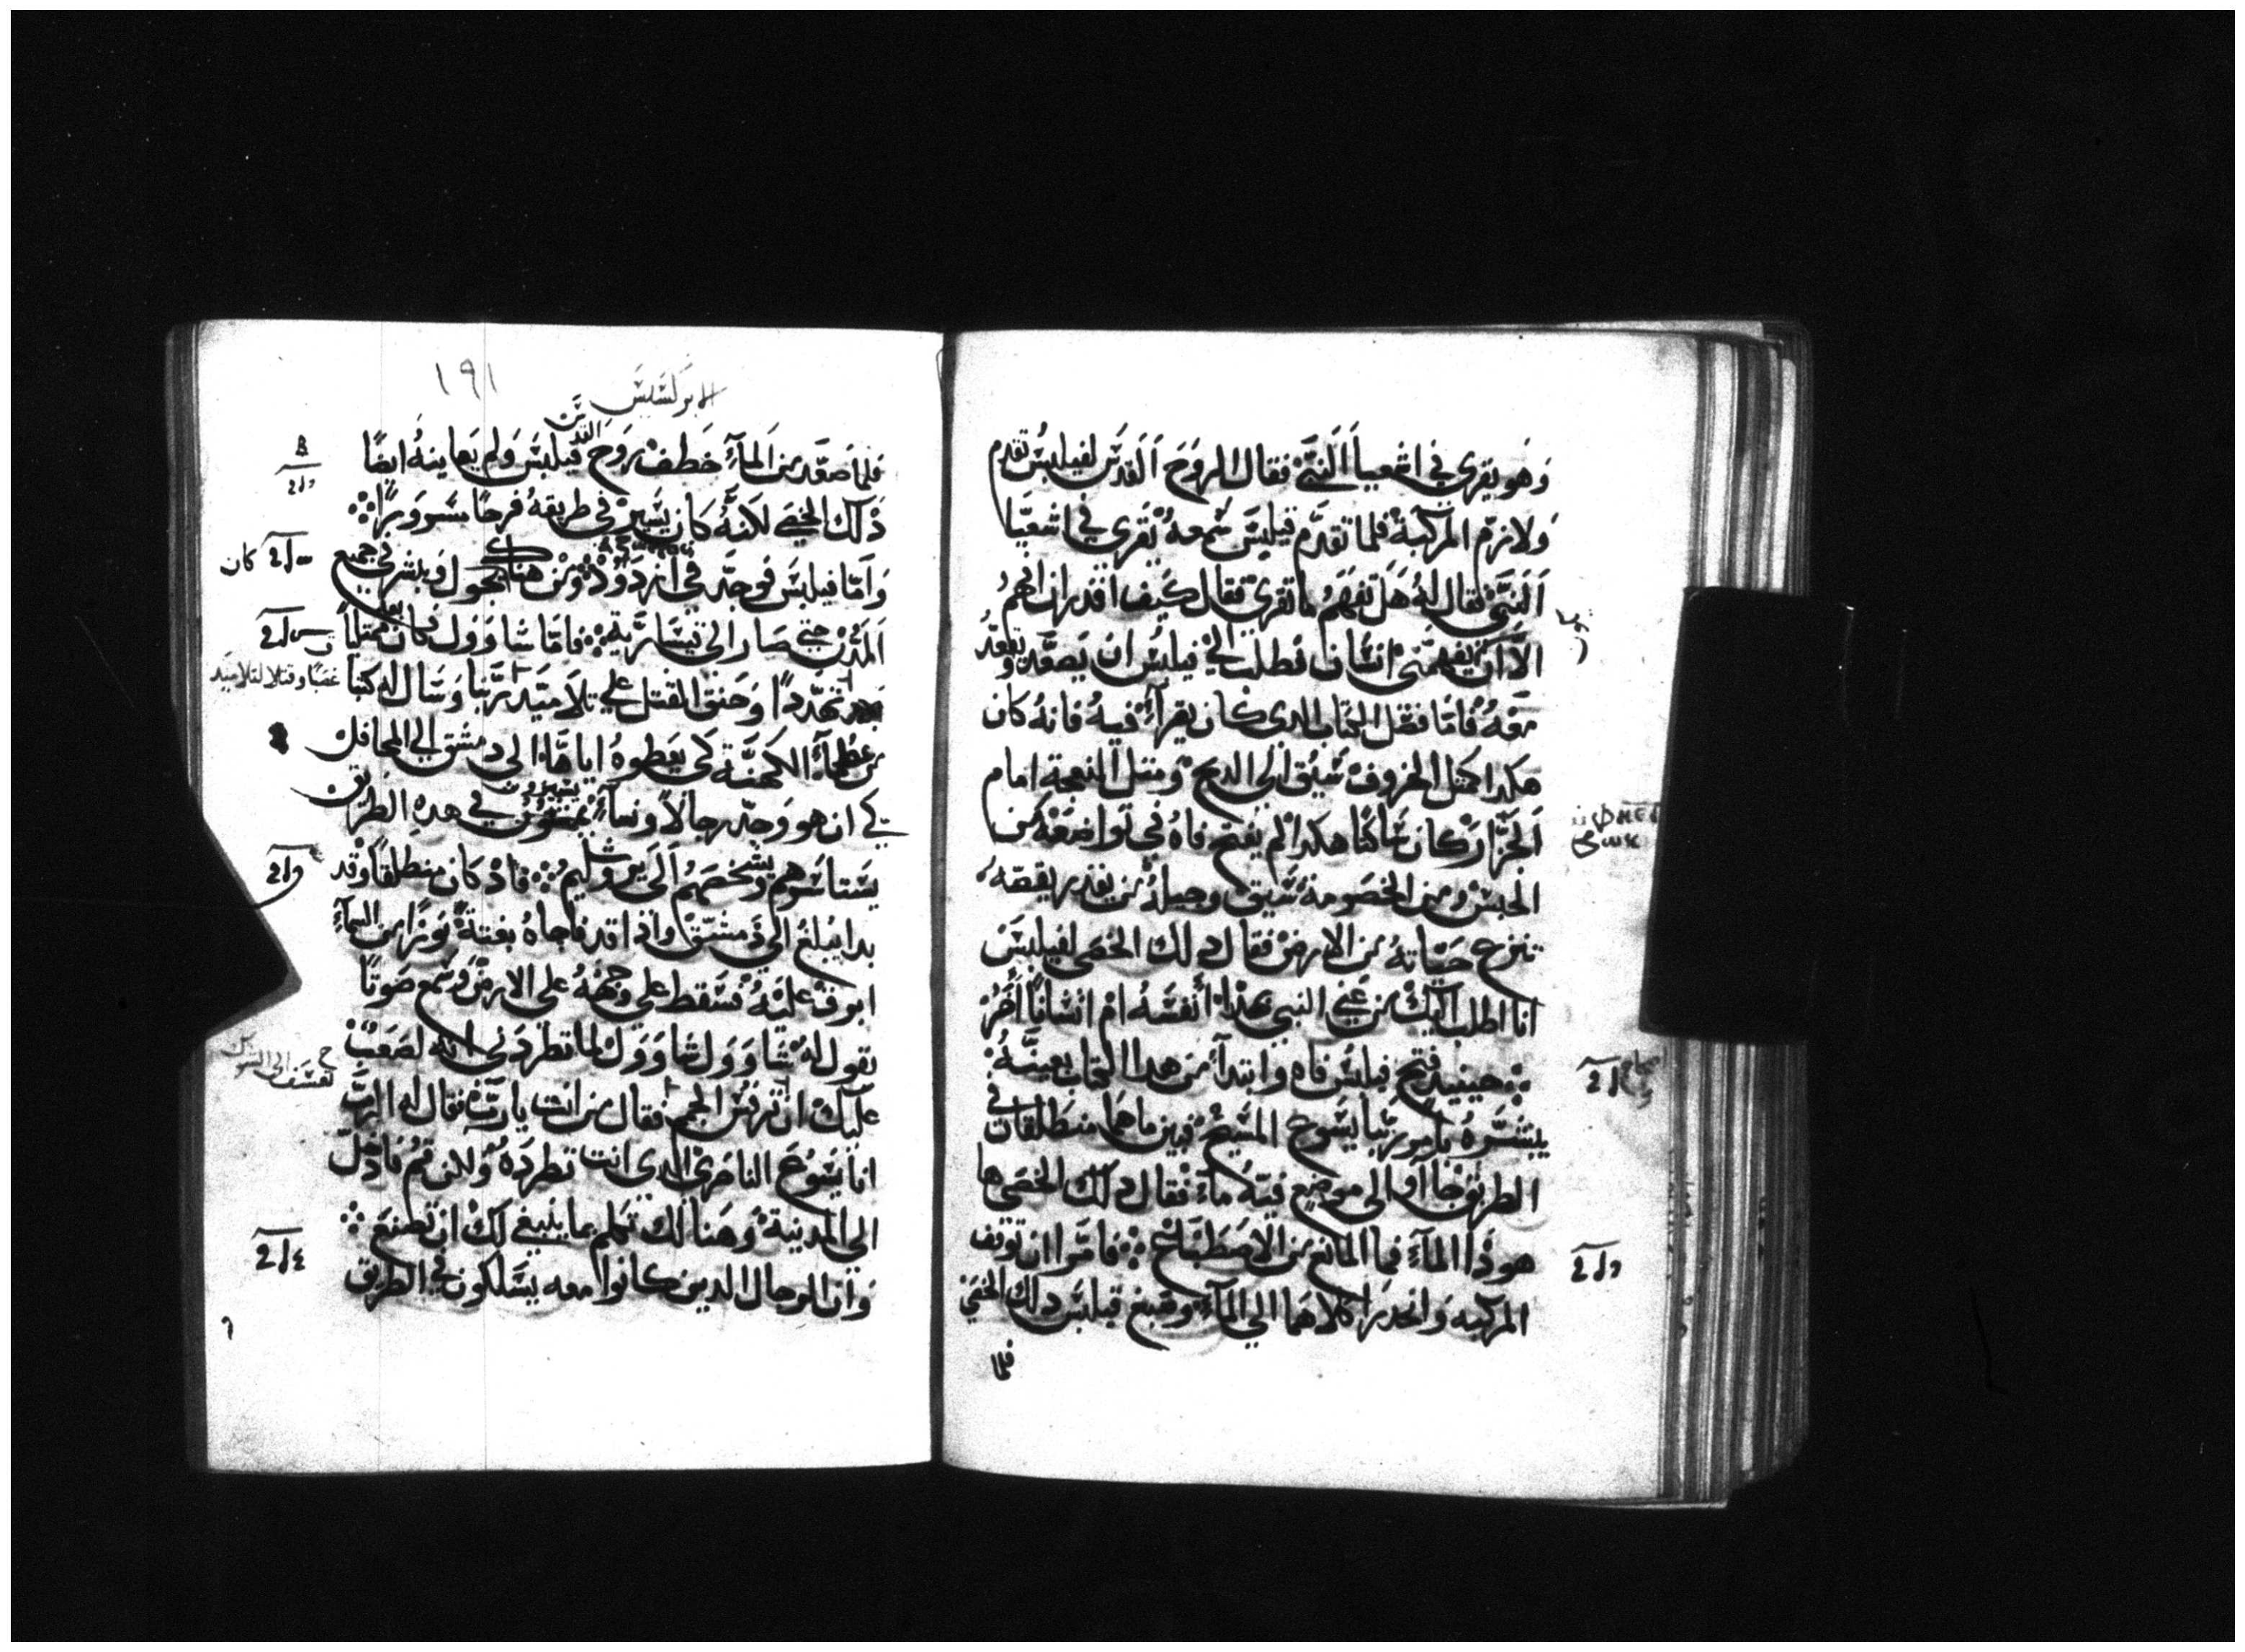 وهو يقرى في اشعيا النبي فقال الروح القدس لفيلبس تقدم
ولازم المركبة فلما تقدم فيلبس سمعه يقرى في اشعيا
النبي فقال له هل تفهم ما تقرى فقال كيف اقدر ان افهم
الا ان يفهمني انسان فطلب الى فيلبس ان يصعد ويقعد
معه فاما فصل الكتاب الدى كان يقرأ فيه فانه كان
هكدا كمثل الخروف سيق الى الدبح ومثل النعجة امام
الجزار كان ساكتا هكدا لم يفتح فاه في تواضعه من
الحبس ومن الخصومة سيق وجيله من يقدر يقصه
تنزح حياته من الارض فقال دلك الخصي لفيلبس
انا اطلب اليك من عني النبي بهذا أنفسه ام انسانا اخر
حينيد فتح فيلبس فاه وابتدأ من هدا الكتاب بعينه
يبشره بامور ربنا يسوع المسيح فبين ماهما منطلقان في
الطريق جاآ الى موضع فيه ماء فقال دلك الخصي ها
هو ذا المآء فما المانع من الاصطباغ فامرا ان توقف
المركبه وانحدرا كلاهما الى المآء وصبغ فيلبس دلك الخصي
فلما
١٩١
الابركسيس
فلما صعد من المآء خطف روح القدس فيلبس ولم يعاينه ايضا
ذلك الخصي لكنه كان يسير في طريقه فرحا مسرورا
واما فيلبس فوجد في ازدود ومن هناك يجول ويبشر في جميع
كان
المدن حتى صار الى قيسارية فاما شاوول كان ممتليا
تهددا وحنق القتل على تلاميد ربنا وسال له كتبا
غضبا وقتلا لتلاميد
من عظمآء الكهنة كي يعطوه اياها الى دمشق الى المحافل
كي ان هو وجد رجالا ونسآء يسيرون في هده الطريق
يستاسرهم ويشخصهم الى يروشليم فاذ كان منطلقا وقد
بدا يبلغ الى دمشق واذا قد فاجاه بغتة نورا من السمآء
ابرق عليه فسقط على وجهه على الارض وسمع صوتا
يقول له شاوول شاوول لما تطردني انه لصعب
عليك ان ترفس فقال من انت يارب فقال له الرب
انا يسوع الناصرى الدى انت تطرده ولاكن قم فادخل
الى المدينة وهنالك تكلم بما ينبغي لك ان تصنع
وان الرجال الدين كانوا معه يسلكون في الطريق